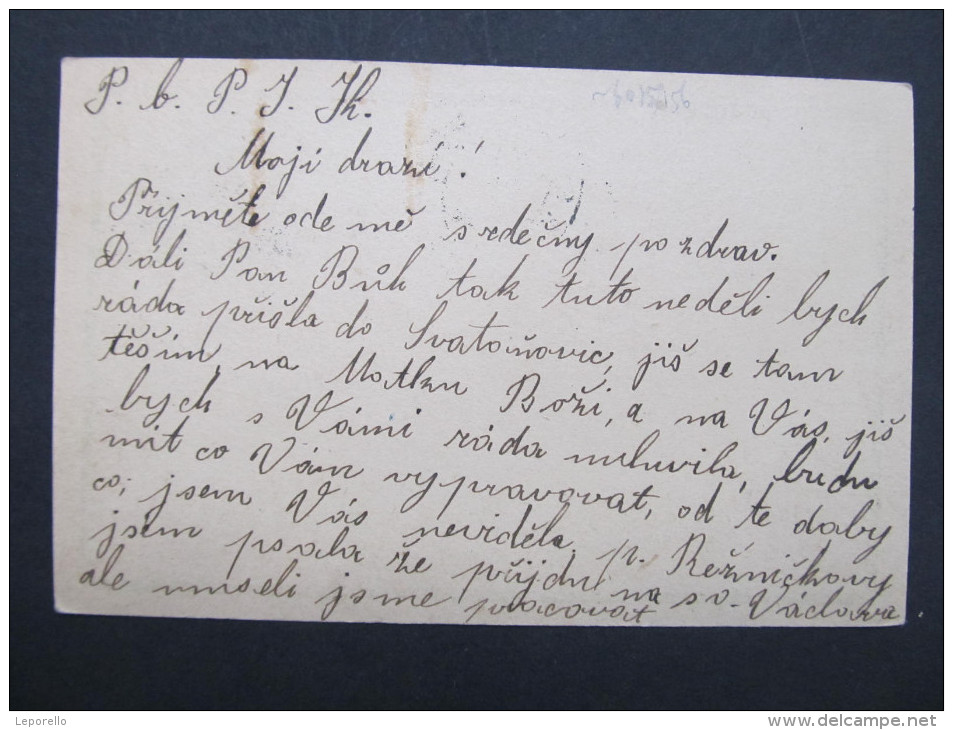 P. b. P. J. Kr.
Moji drazí!
Přijměte ode mě srdečny pozdrav.
Dáli Pan Bůh tak tuto neděli bych
ráda přišla do Svatoňovic, jiš se tam
těším, na Matku Boži, a na Vás, jiš
bych s Vámi ráda mluvila, budu
mit co Vám vypravovat, od te doby
co, jsem Vás neviděla, p. Režničkovy
jsem psala že přijdu na sv. Václava
ale museli jsme pracovat
Leporello
www.delcampe.net